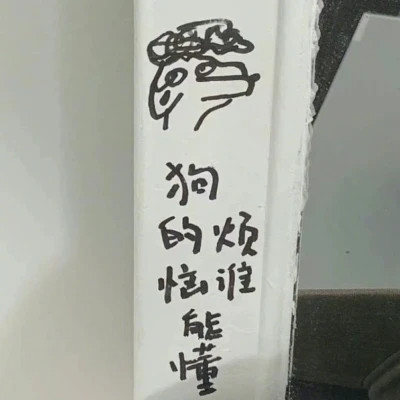 狗
的烦
恼谁
能
懂